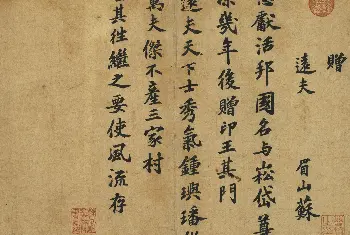 贈
遠夫 眉山蘇
獻活邦國名与崧岱尊
幾年後贈印王其門
遠夫天下士秀氣鍾璵璠
萬夫傑不產三家村
其往繼之要使風流存